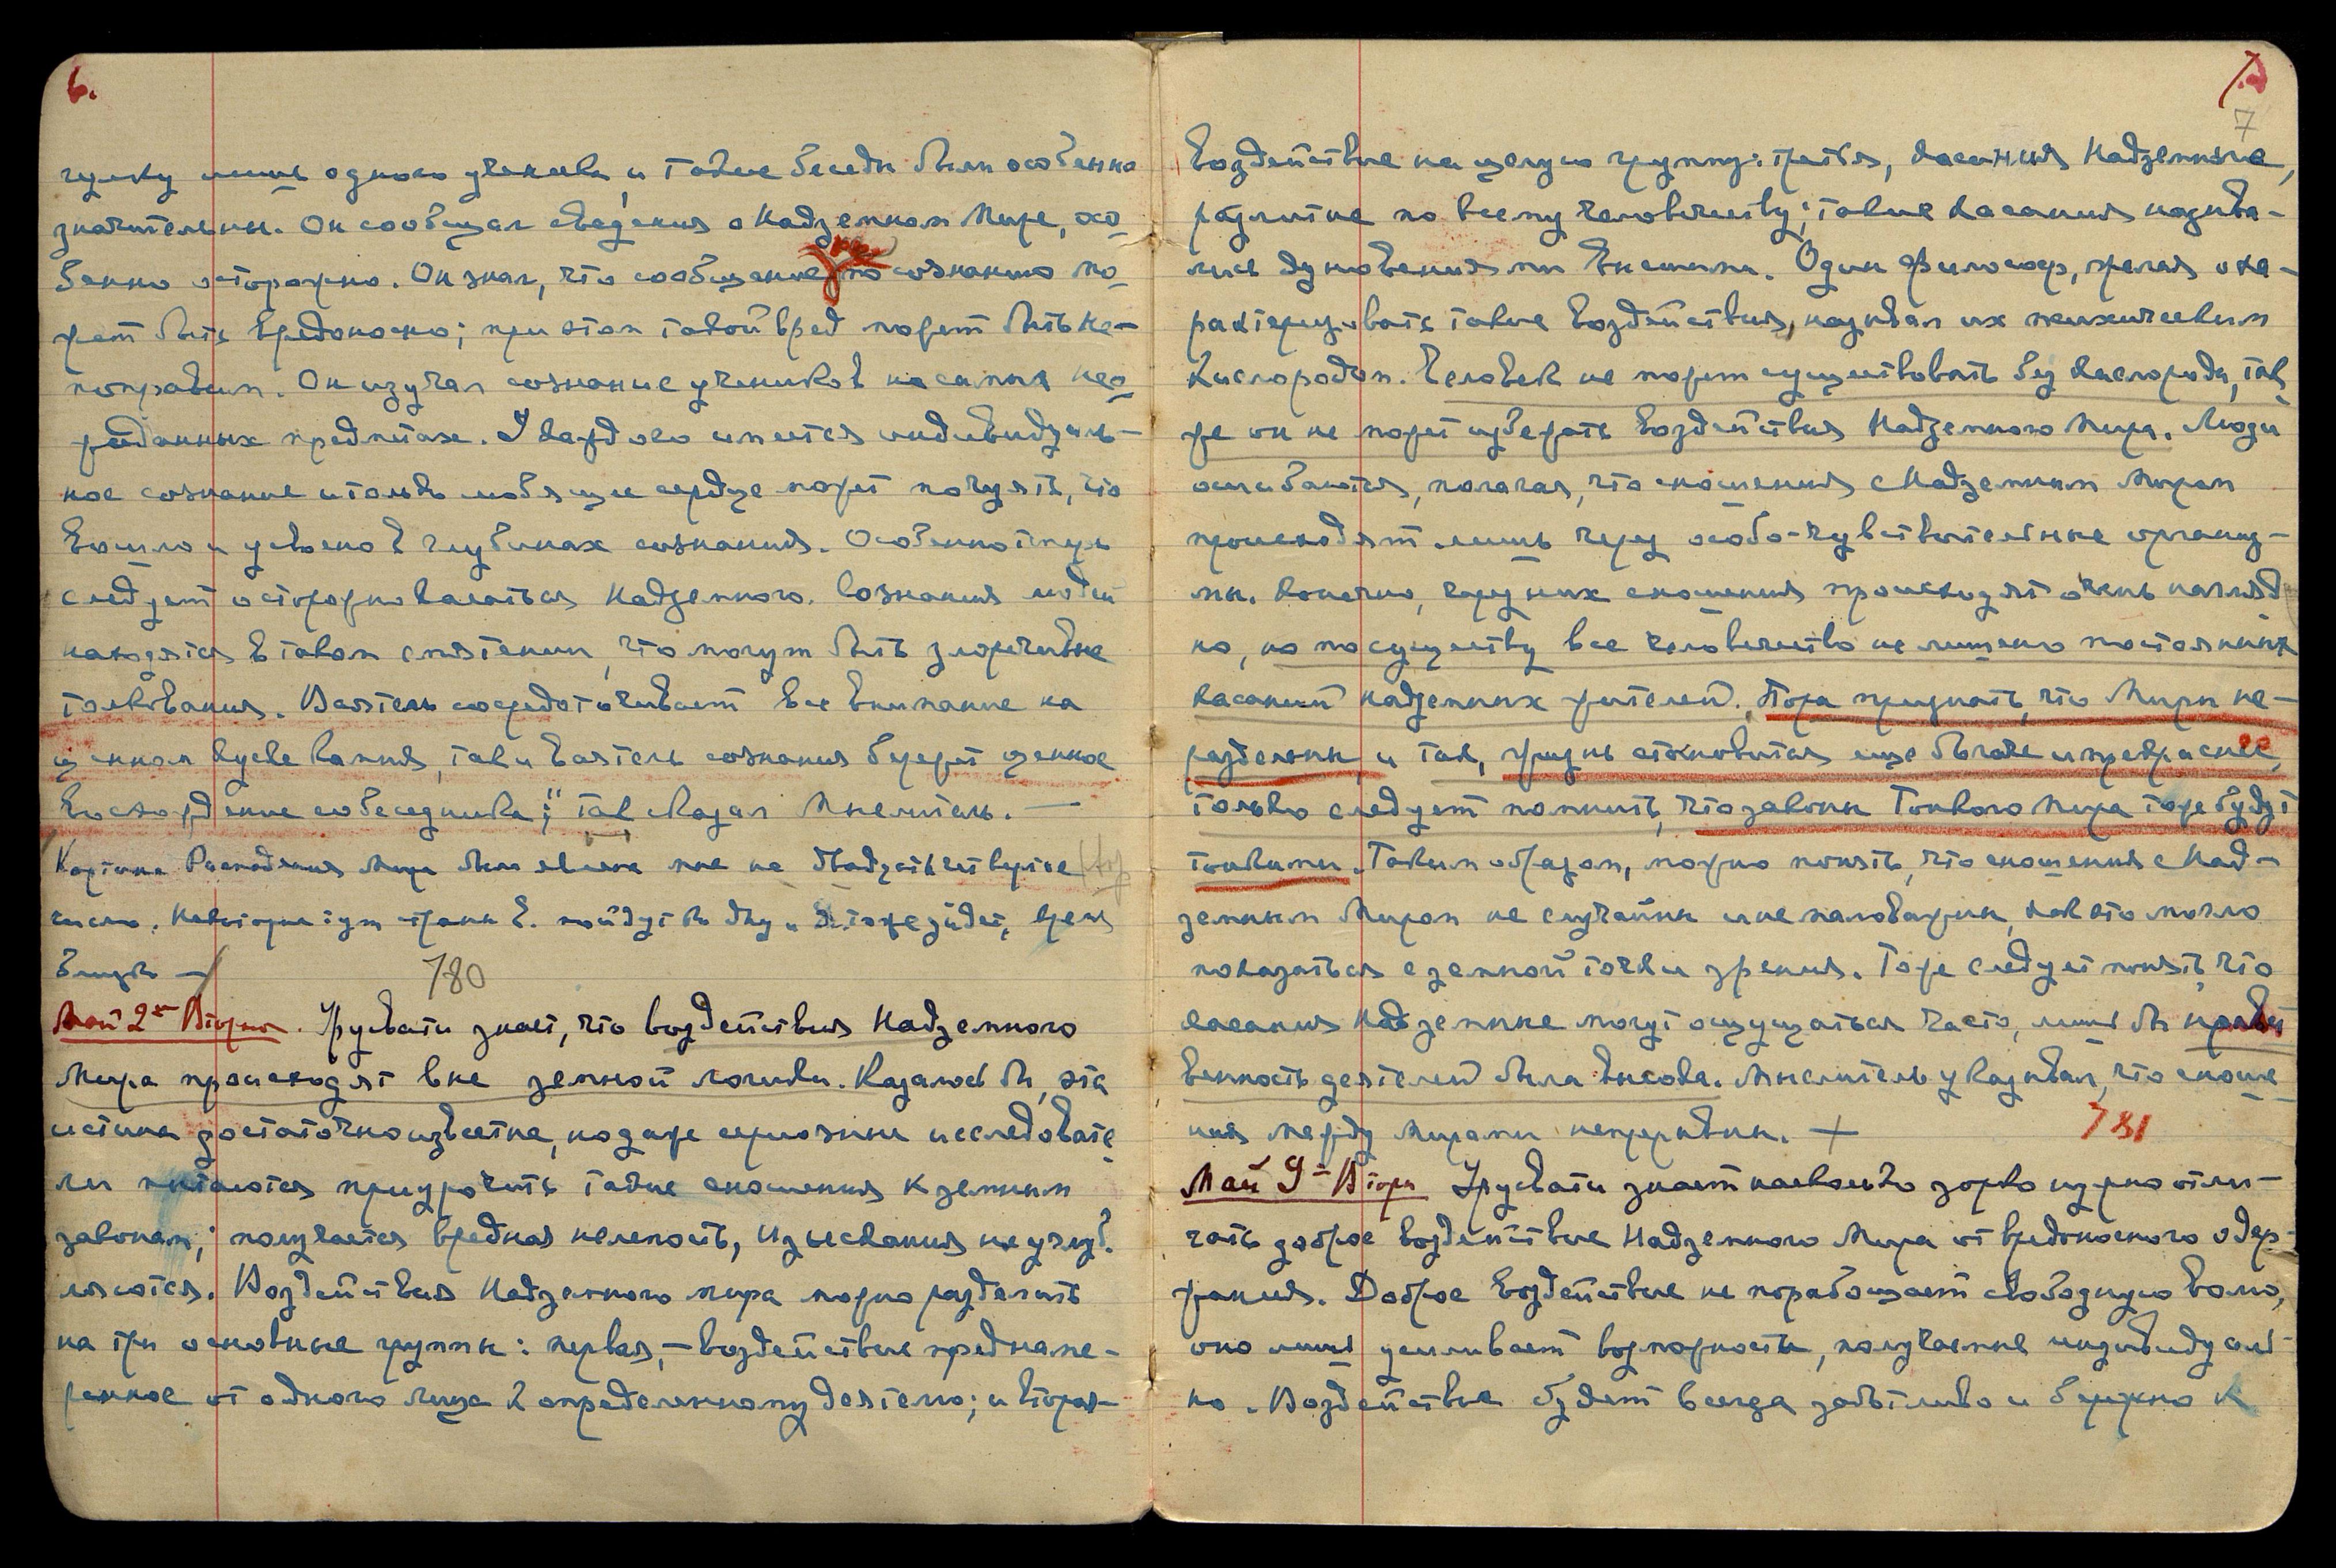 6.
гулку лишь одного ученика, и такие беседы были особенно
значительны. Он сообщал сведения о Надземном Мире, осо-
бенно осторожно. Он знал, что сообщение не по сознанию мо-
жет быть вредоносно; при этом такой вред может быть не-
поправим. Он изучал сознание учеников на самых нео-
жиданных предметах. У каждого имеется индивидуаль-
ное сознание и только любящее сердце может почуять, что
вошло и усвоено в глубинах сознания. Особенно теперь
следует осторожно касаться Надземного. Сознания людей
находятся в таком смятении, что могут быть злоречивые
толкования. Ваятель сосредоточивает все внимание на
ценном куске камня, так и Ваятель сознания бережет ценное
восхождение собеседника;" так сказал Мыслитель. —
Картина Распадения Мира была явлена мне на двадцать четвертое
число. Некоторые тут страны Е. пойдут ко дну и тоже уйдет, время
близко —
780
Май 2ое Вторн. Урусвати знает, что воздействия Надземного
Мира происходят вне земной логики. Казалось бы, эта
истина достаточно известна, но даже серьозные исследовате
ли пытаются приурочить такие сношения к земным
законам; получается вредная нелепость, изыскания не углуб-
ляются. Воздействия Надземного мира можно разделить
на три основные группы: первая, — воздействие преднаме-
ренное от одного лица к определенному деятелю; и вторая—
7.
7
воздействие на целую группу; третья, касания Надземные,
разлитые по всему человечеству; такие касания называ-
лись дуновениями Вечными. Один философ, желая оха-
рактеризовать такие воздействия, называл их психическим
кислородом. Человек не может существовать без кислорода, так
же он не может избежать воздействия Надземного Мира. Люди
ошибаются, полагая, что сношения с Надземным Миром
происходят лишь через особо-чувствительные организ-
мы. Конечно, через них сношения происходят очень нагляд
но, но по существу все человечество не лишено постоянных
касаний надземных жителей. Пора признать, что Миры не-
раздельны, и так, жизнь становится еще богаче и прекраснее,
только следует помнить, что законы Тонкого Мира тоже будут
тонкими. Таким образом, можно понять, что сношения с Над-
земным Миром не случайны и не маловажны, как это могло
показаться с земной точки зрения. Тоже следует понять, что
касания Надземные могут ощущаться часто, лишь бы нравст
венность деятелей была высока. Мыслитель указывал, что сноше
ния между Мирами непрерывны. —
781
Май 9е Вторн Урусвати знает насколько зорко нужно отли-
чать доброе воздействие Надземного Мира от вредоносного одер-
жания. Доброе воздействие не порабощает свободную волю,
оно лишь усиливает возможности, получаемые индивидуаль-
но. Воздействие будет всегда заботливо и бережно к